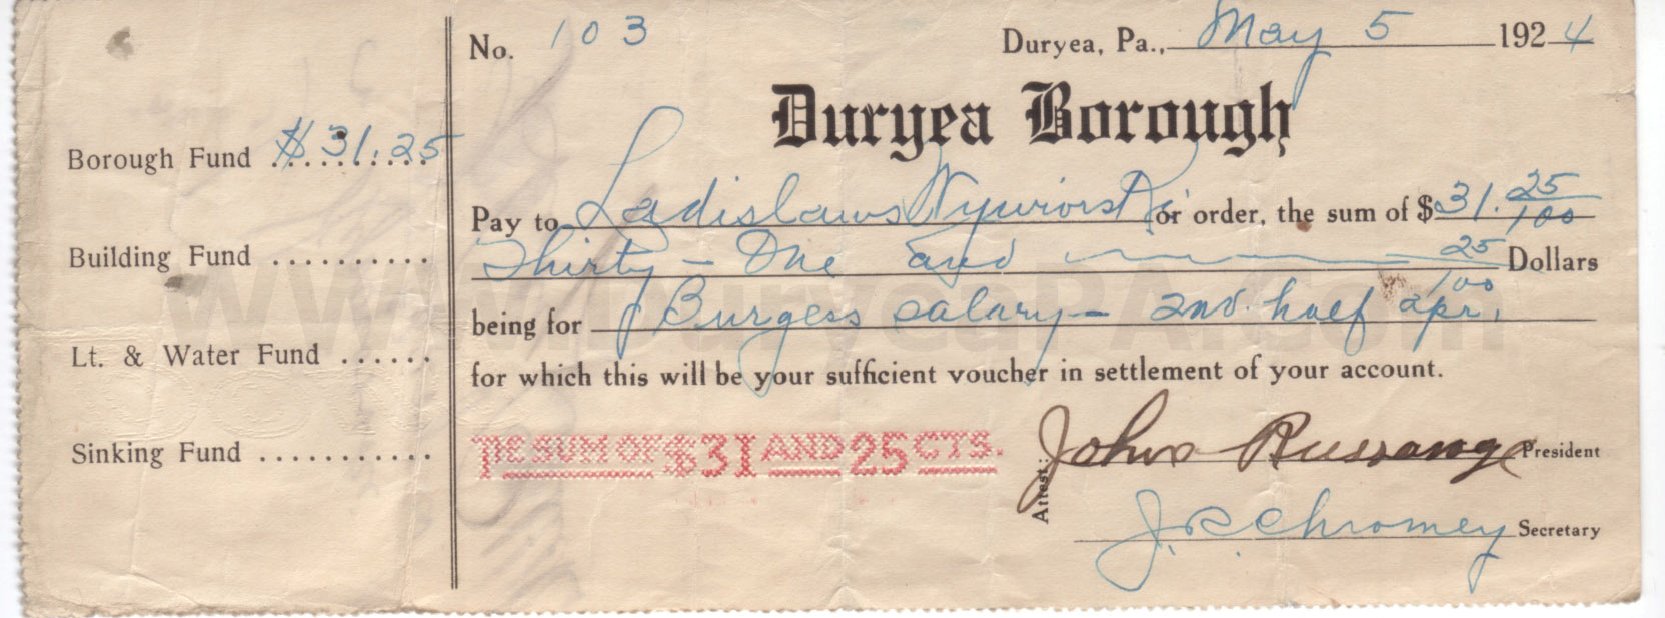 No. 103
Duryea, Pa., May 5 1924
Duryea Borough
Borough Fund $31.25
Building Fund
Lt. & Water Fund
Sinking Fund
Pay to Ladislaws Wywiorski or order, the sum of $31.25/100
Thirty - One and 25/100 Dollars
being for Burgess salary - 2nd. half apr.
for which this will be your sufficient voucher in settlement of your account.
THE SUM OF $31 AND 25 CTS.
Attest:
John President
J.R. Chromey Secretary
www.DuryeaPA.com